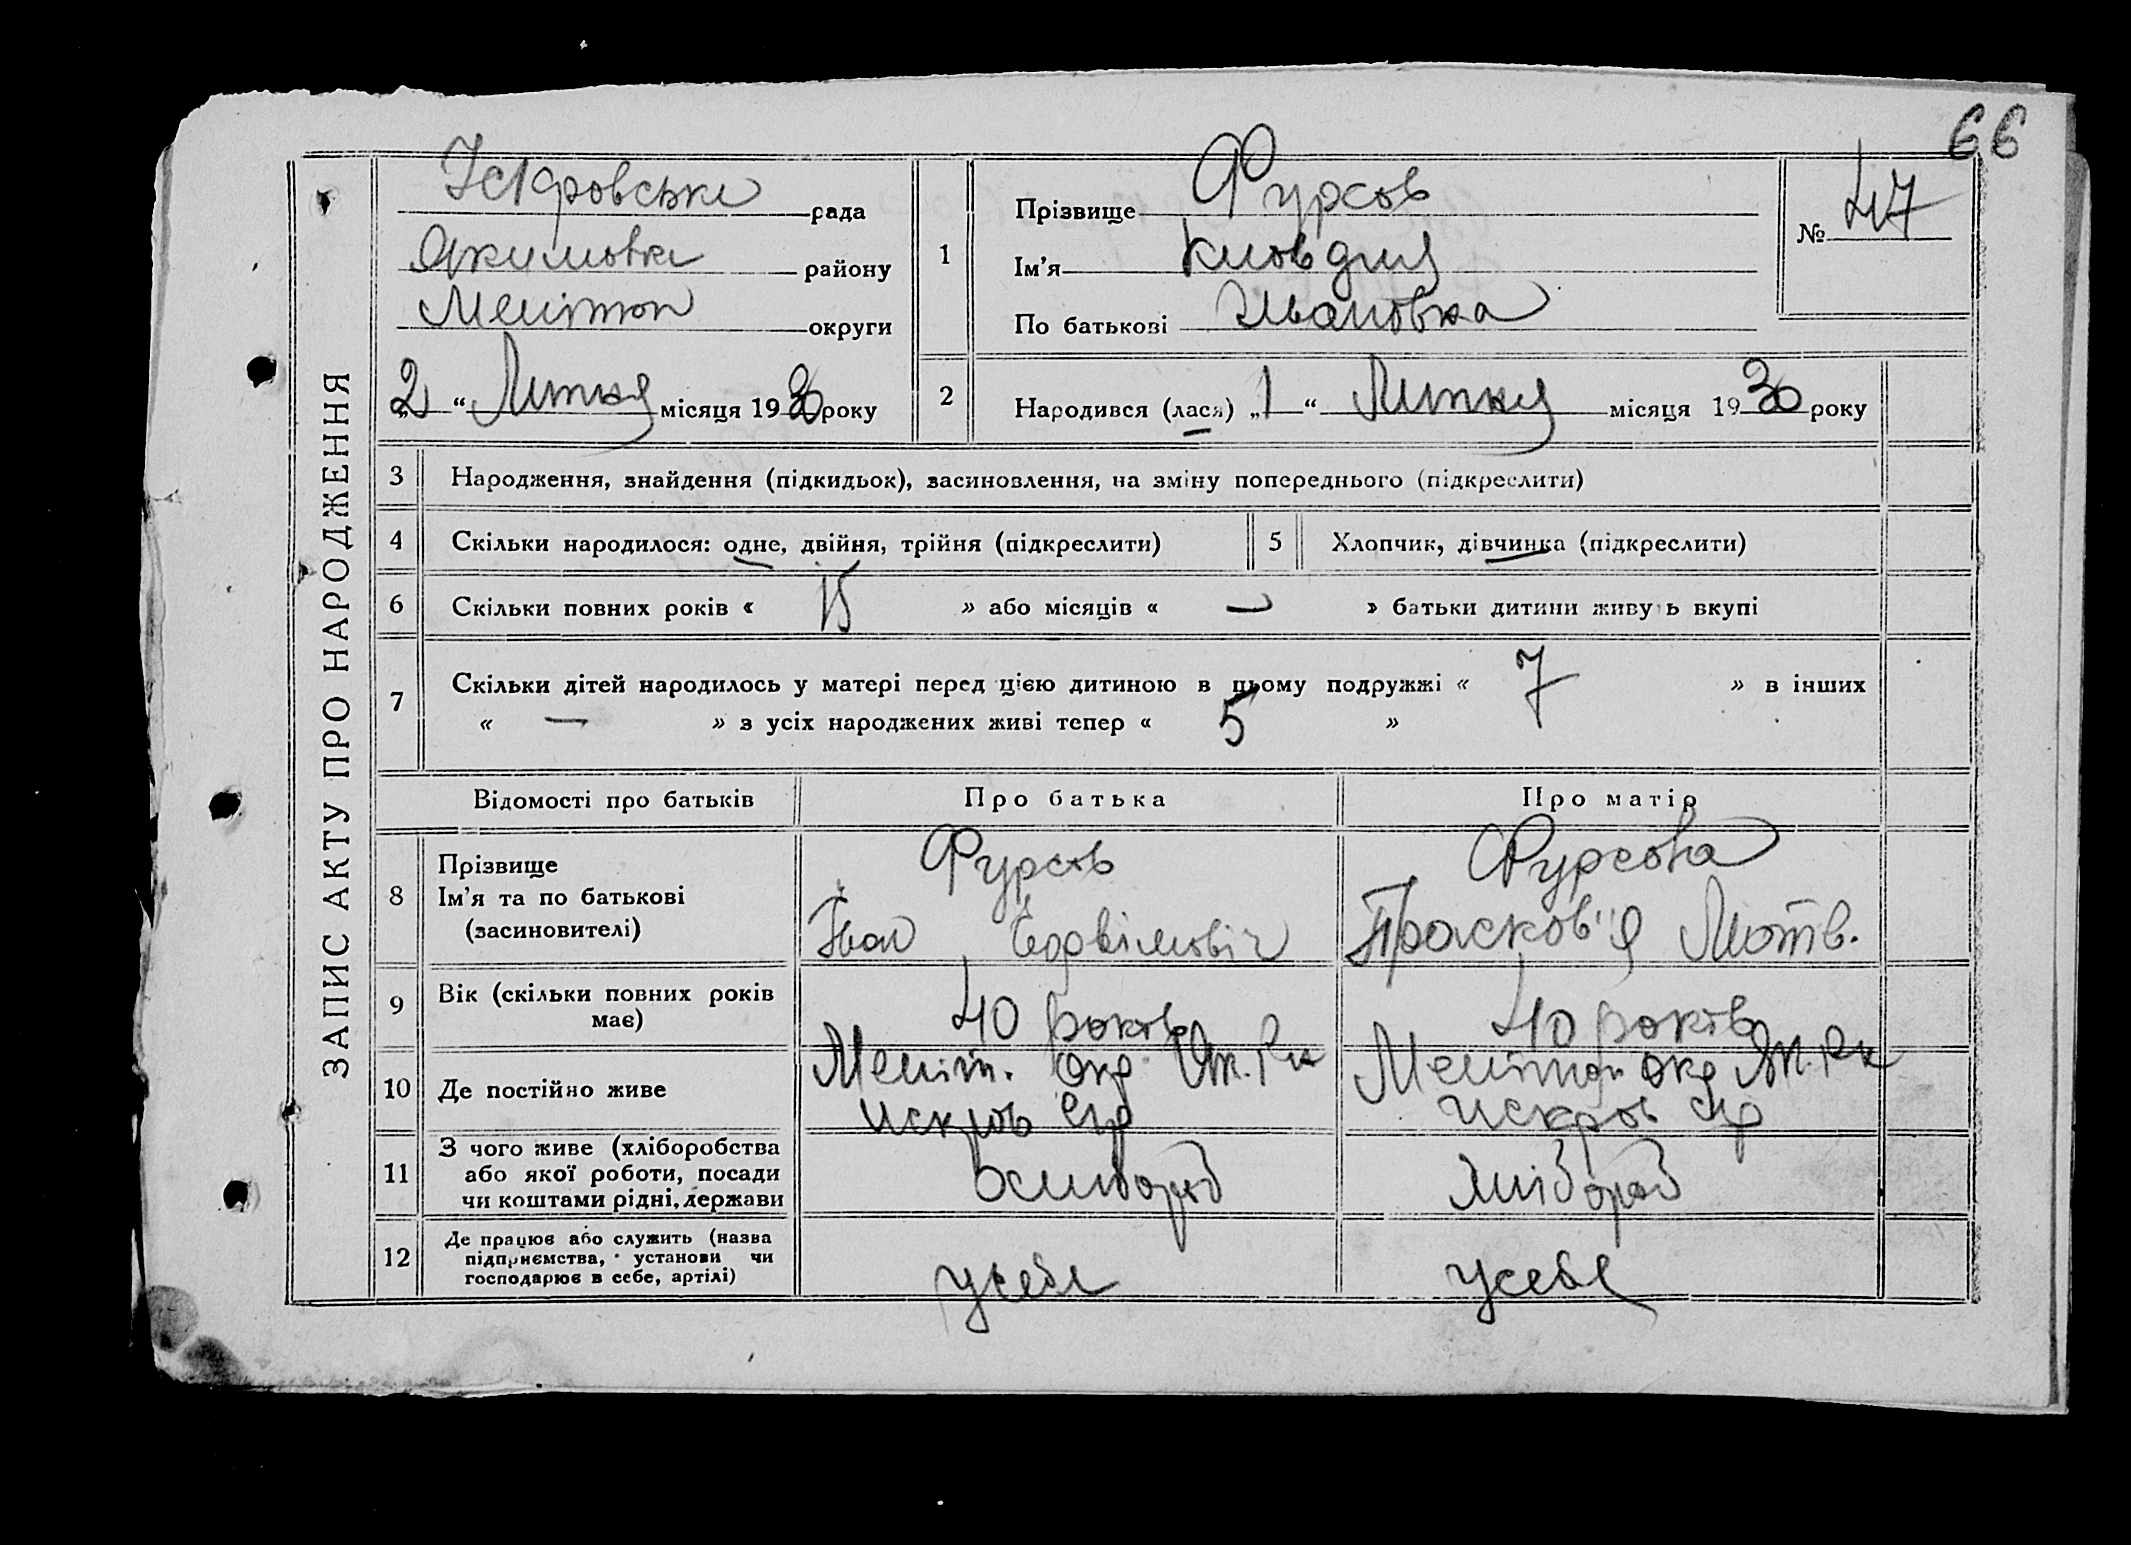 66
ЗАПИС АКТУ ПРО НАРОДЖЕННЯ
рада
Якимовка району
Мелітоп округи
„2“ Лютня місяця 1930 року
1
Прізвище Фурсов
Ім'я Клавдия
По батькові Ивановна
№ 47
2
Народився (лася) „1“ Лютня місяця 1930 року
3 Народження, знайдення (підкидьок), засиновлення, на зміну попереднього (підкреслити)
4 Скільки народилося: одне, двійня, трійня (підкреслити)
5 Хлопчик, дівчинка (підкреслити)
6 Скільки повних років « 15 » або місяців « — » батьки дитини живуть вкупі
7 Скільки дітей народилось у матері перед цією дитиною в цьому подружжі « 7 » в інших
« — » з усіх народжених живі тепер « 5 »
Відомості про батьків Про батька Про матір
8 Прізвище
Ім'я та по батькові
(засиновителі)
Фурсов
Іван
Фурсова
Прасков'я Мотв.
9 Вік (скільки повних років
має)
40 років
40 років
10 Де постійно живе
Меліт. Окр Як. Р-н
Искров с/р
Мелітоп Окр Як. Р-н
Искров с/р
11 З чого живе (хліборобства
або якої роботи, посади
чи коштами рідні, держави
хлібороб
12 Де працює або служить (назва
підприємства, установи чи
господарює в себе, артілі)
у себе
у себе